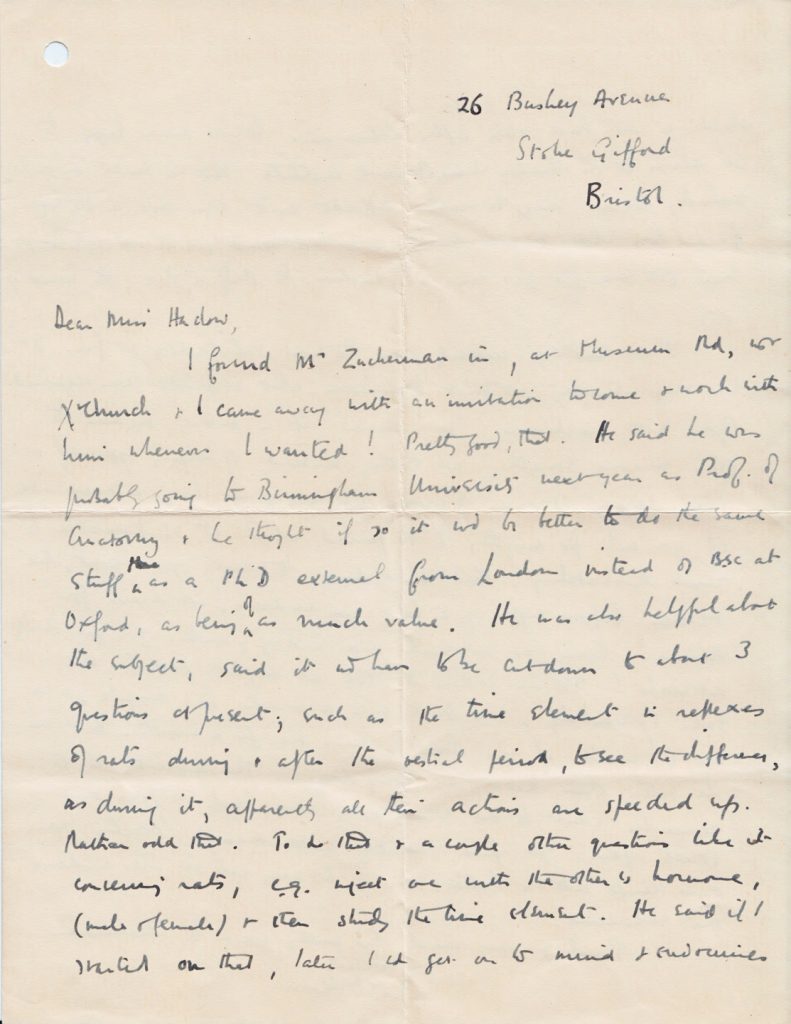 26 Bushey Avenue
Stoke Gifford
Bristol.
Dear Miss Hadow,
I found Mr Zuckerman in, at Museum Rd, not
X'Church & I came away with an invitation to come & work with
him whenever I wanted! Pretty good, that. He said he was
probably going to Birmingham University next year as Prof. of
Anatomy & he thoght if so it wd be better to do the same
stuff there as a Ph'D external from London instead of BSc at
Oxford, as being of as much value. He was also helpful about
the subject, said it wd have to be cut down to about 3
questions at present; such as the time element in reflexes
of rats during & after the oestrial period, to see the difference,
as during it, apparently all their actions are speeded up.
Rather odd that. To do that & a couple other questions like it
concerning rats, e.g. inject one with the other's hormone,
(male & female) & then study the time element. He said if I
started on that, later I cd get on to mind & endocrines